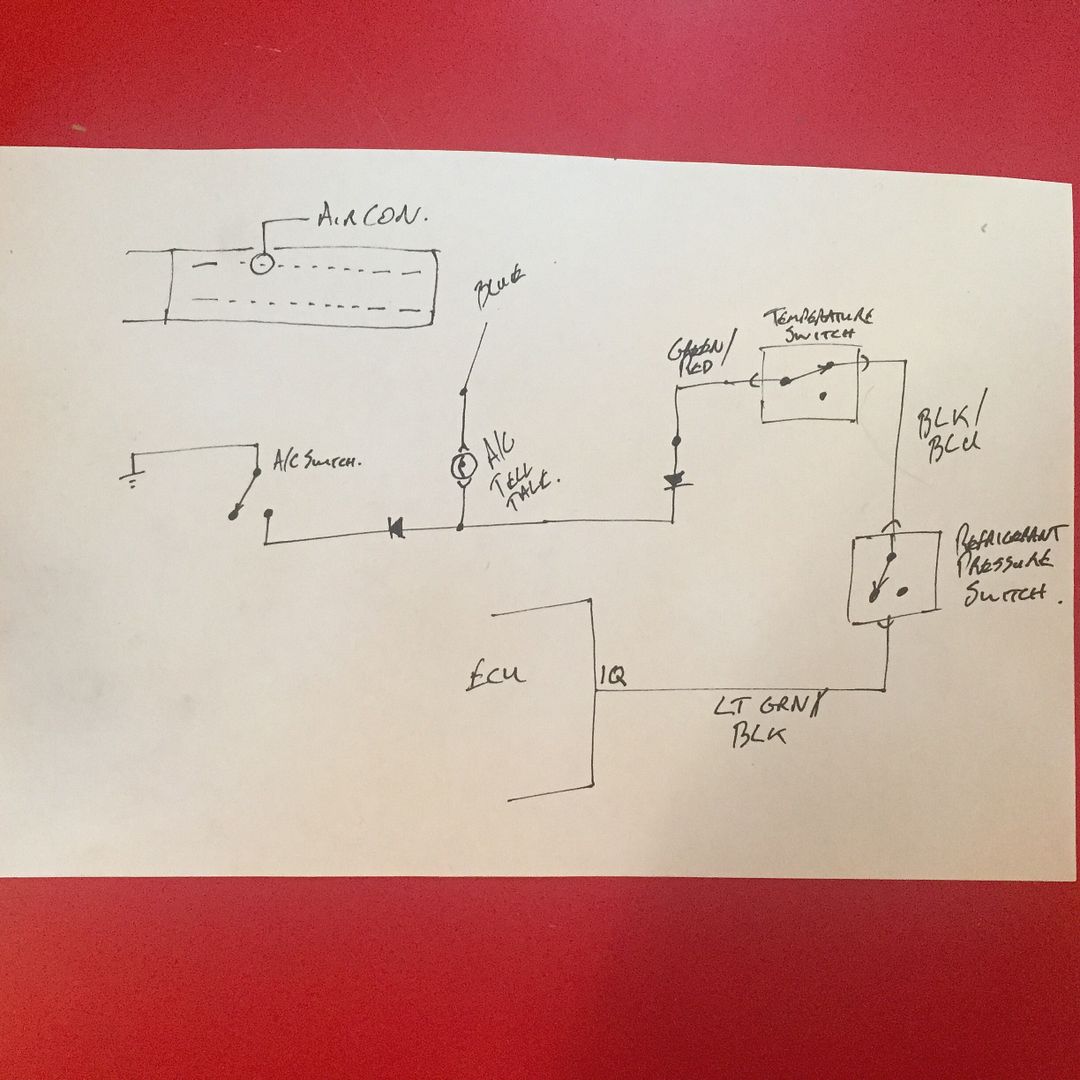 AIRCON.
BLUE
TEMPERATURE
SWITCH
GREEN/
RED
A/C SWITCH.
A/C
TELL
TALE.
BLK/
BLU
REFRIGERANT
PRESSURE
SWITCH.
ECU
1Q
LT GRN/
BLK